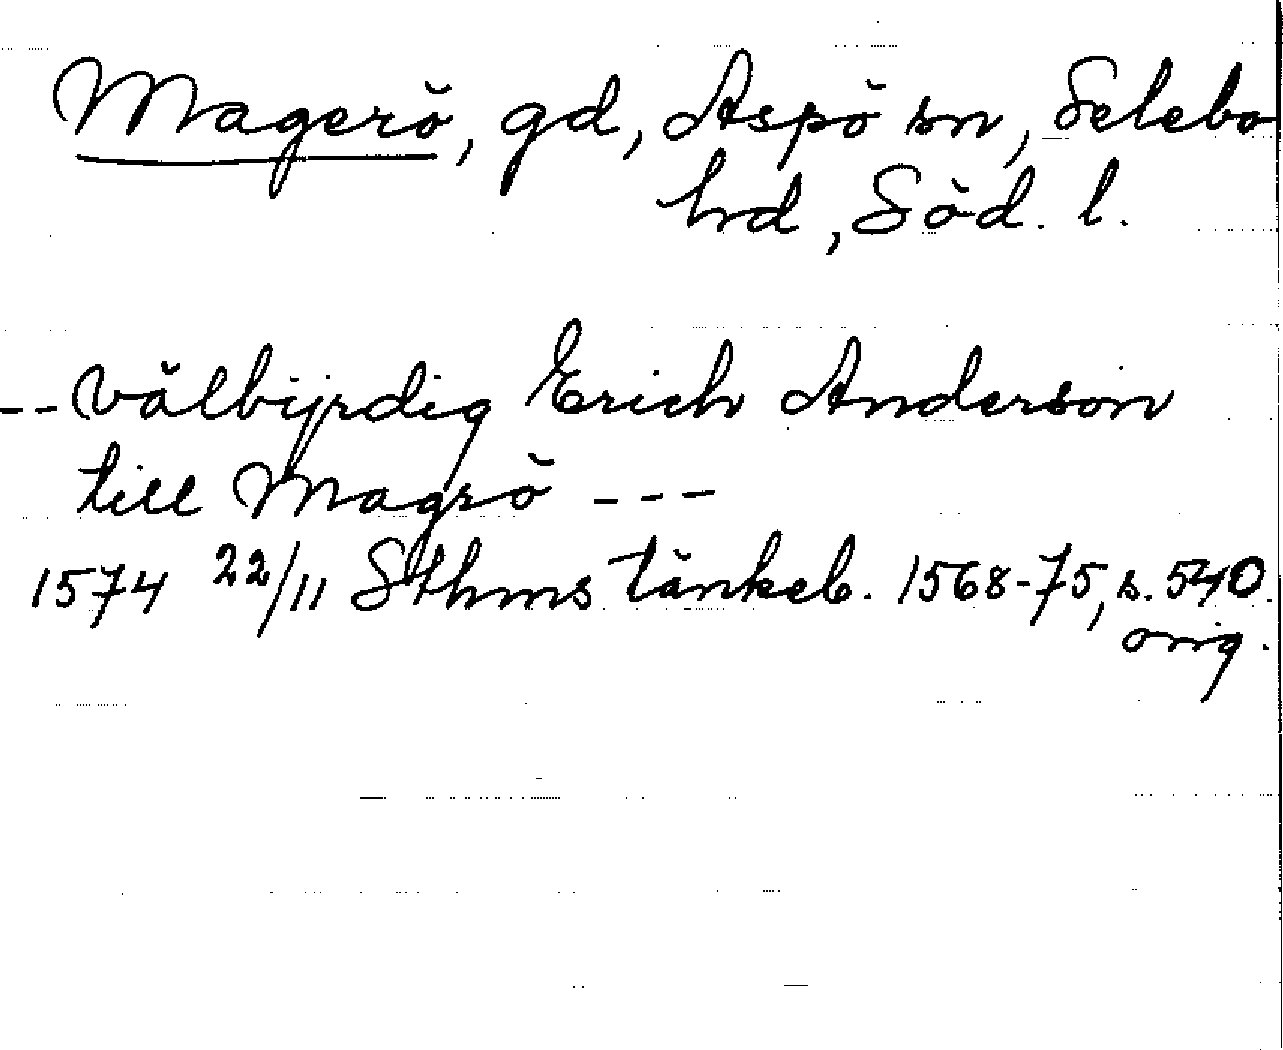 Magerö, gd, Aspö sn, Selebo
hd, Söd. l.
-- välbyrdig Erich Anderson
till Magrö ---
1574 22/11 Sthms tänkeb. 1568-75, s. 540.
orig.